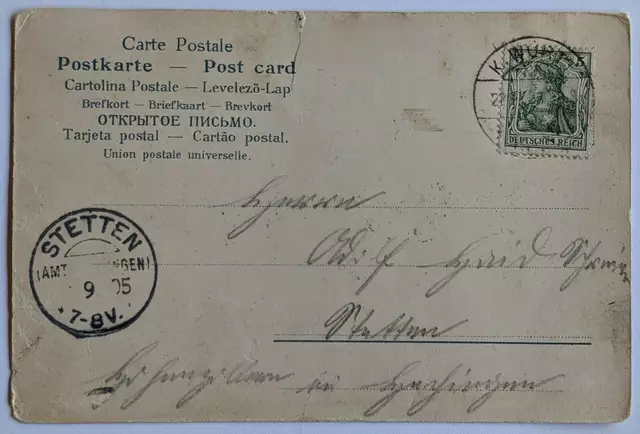 Carte Postale
Postkarte — Post card
Cartolina Postale — Levelezõ-Lap
Brefkort — Briefkaart — Brevkort
ОТКРЫТОЕ ПИСЬМО.
Tarjeta postal — Cartão postal.
Union postale universelle.
DEUTSCHES REICH
STETTEN
(AMT NGEN)
9 05
7-8V.
Herrn
Adolf Haid
Stetten
Hechingen